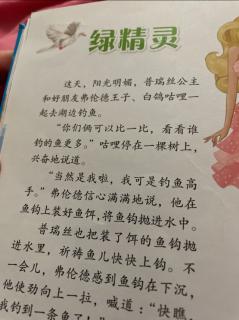 绿精灵
这天，阳光明媚，普瑞丝公主
和好朋友弗伦德王子、白鸽咕哩一
起去湖边钓鱼。
“你们俩可以比一比，看看谁
钓的鱼更多。”咕哩停在一棵树上，
兴奋地说道。
“当然是我啦，我可是钓鱼高
手。”弗伦德信心满满地说，他在
鱼钩上装好鱼饵，将鱼钩抛进水中。
普瑞丝也把装了饵的鱼钩抛
进水里，祈祷鱼儿快快上钩。不
一会儿，弗伦德感到鱼钩在下沉，
他使劲向上一拉，喊道：“快瞧，
我钓到一条鱼了，